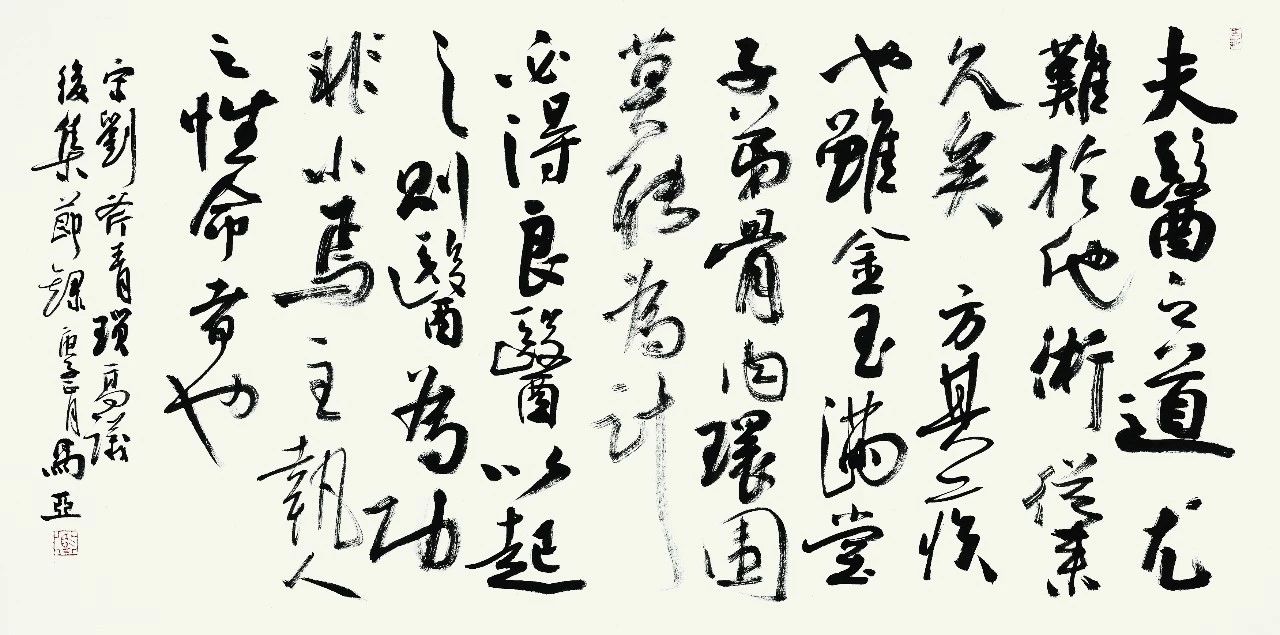 夫醫之道尤
難於他術從來
久矣方其疾
也雖金玉滿堂
子弟骨肉環圍
莫能為計
必得良醫以起
之則醫為功
非小焉主執人
之性命者也
宋劉斧青瑣高議
後集節錄庚子二月馬亞